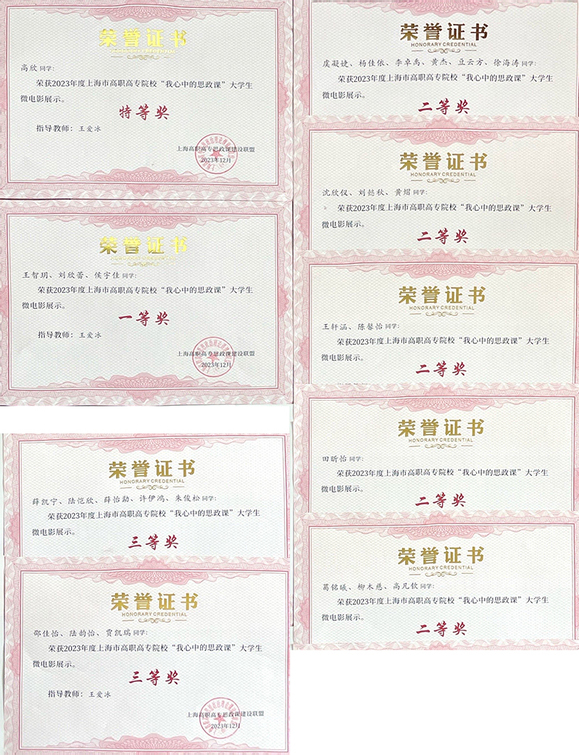 荣誉证书
高欣同学:
荣获2023年度上海市高职高专院校“我心中的思政课”大学生
微电影展示。
特等奖
指导教师:王爱冰
上海高职高专思政课建设联盟
2023年12月
荣誉证书
王智玥、刘欣蕾、侯宇佳同学:
荣获2023年度上海市高职高专院校“我心中的思政课”大学生
微电影展示。
一等奖
指导教师:王爱冰
上海高职高专思政课建设联盟
2023年12月
荣誉证书
HONORARY CREDENTIAL
薛凯宁、陆恺欣、薛怡勋、许伊鸿、朱俊松同学:
荣获2023年度上海市高职高专院校“我心中的思政课”大学生
微电影展示。
三等奖
荣誉证书
HONORARY CREDENTIAL
邵佳怡、陆韵怡、贾凯瑞同学:
荣获2023年度上海市高职高专院校“我心中的思政课”大学生
微电影展示。
三等奖
指导教师:王爱冰
上海高职高专思政课建设联盟
2023年12月
荣誉证书
HONORARY CREDENTIAL
虞凝婕、杨佳依、李卓禹、黄杰、亘云方、徐海涛同学:
荣获2023年度上海市高职高专院校“我心中的思政课”大学生
微电影展示。
二等奖
荣誉证书
HONORARY CREDENTIAL
沈欣仪、刘懿秋、黄熠同学:
荣获2023年度上海市高职高专院校“我心中的思政课”大学生
微电影展示。
二等奖
荣誉证书
HONORARY CREDENTIAL
王轩涵、陈馨怡同学:
荣获2023年度上海市高职高专院校“我心中的思政课”大学生
微电影展示。
二等奖
荣誉证书
HONORARY CREDENTIAL
田昕怡同学:
荣获2023年度上海市高职高专院校“我心中的思政课”大学生
微电影展示。
二等奖
荣誉证书
HONORARY CREDENTIAL
葛铭曦、柳木慈、高凡钦同学:
荣获2023年度上海市高职高专院校“我心中的思政课”大学生
微电影展示。
二等奖